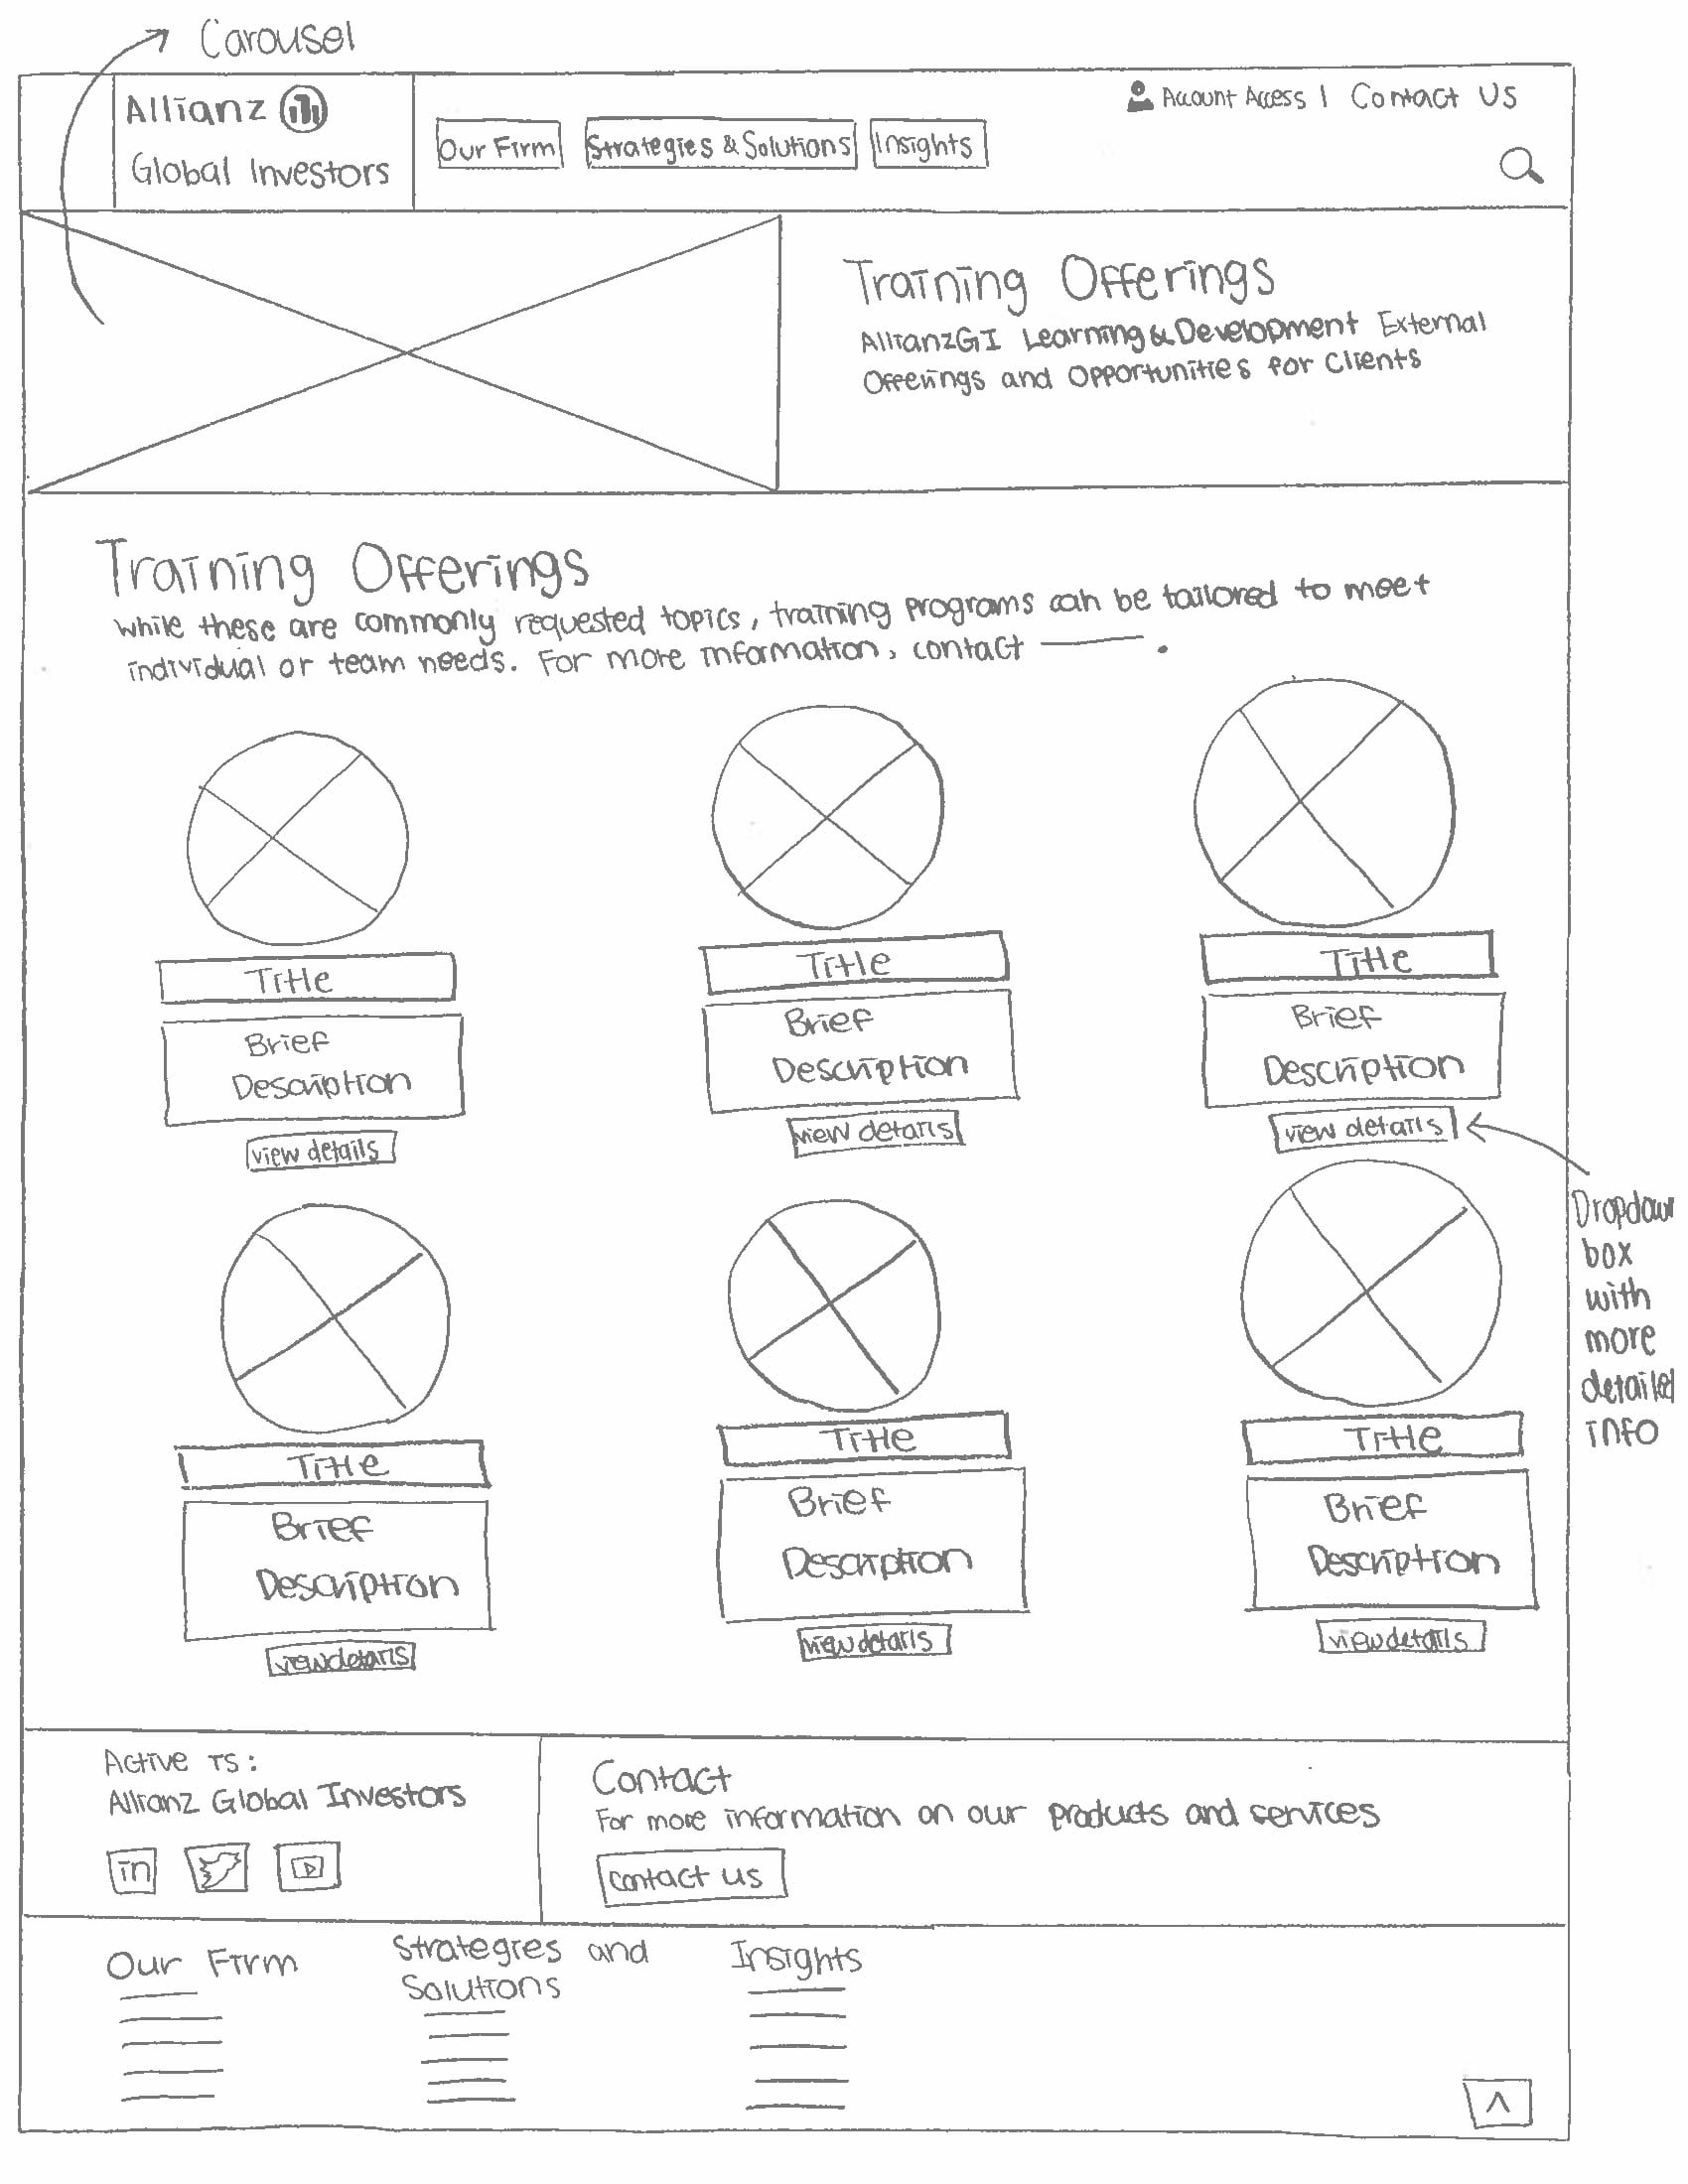 Carousel
Allianz
Global Investors
Our Firm
Strategies & Solutions
Insights
Account Access | Contact Us
Training Offerings
AllianzGI Learning & Development External
Offerings and Opportunities for Clients
Training Offerings
while these are commonly requested topics, training programs can be tailored to meet
individual or team needs. For more information, contact ———.
Title
Title
Title
Brief
Description
Brief
Description
Brief
Description
view details
view details
view details
Dropdown
box
with
more
detailed
info
Title
Title
Title
Brief
Description
Brief
Description
Brief
Description
view details
view details
view details
Active is:
Allianz Global Investors
in
Contact
For more information on our products and services
contact us
Our Firm
Strategies and
Solutions
Insights